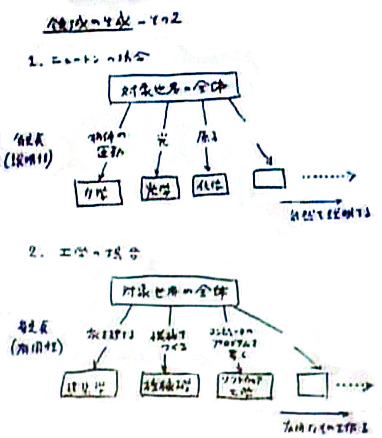 領域の生成 - その2
1. ニュートンの場合
対象世界の全体
着眼点
(説明性)
物体の
運動
光
原子
力学
光学
化学
自然を説明する
2. 工学の場合
対象世界の全体
着眼点
(有用性)
機械を
つくる
コンピュータの
プログラムを
書く
建築学
機械学
ソフトウェア
工学